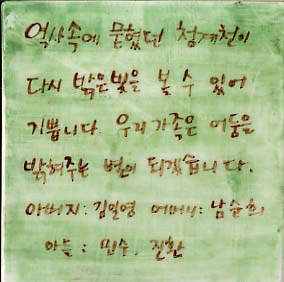 역사속에 묻혔던 청계천이
다시 밝은빛을 볼 수 있어
기쁩니다. 우리가족은 어둠을
밝혀주는 별이 되겠습니다.
아버지: 김일영 어머니: 남순희
아들 : 민수, 진환